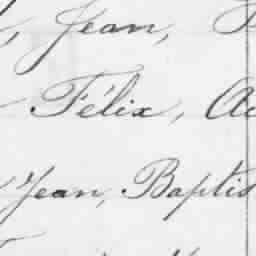 Jean,
Félix,
Jean, Baptis